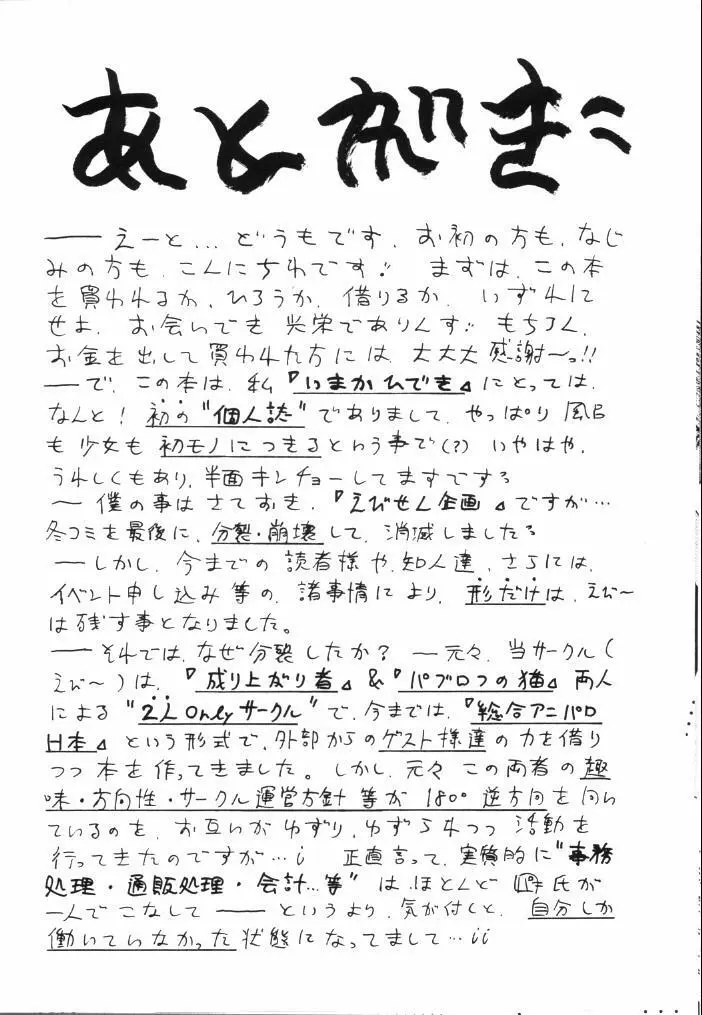 あとがき
── えーと… どうもです. お初の方も, なじ
みの方も, こんにちわです!! まずは, この本
を買われるか, ひろうか, 借りるか, いずれに
せよ, お会いでき 光栄でありんす!! もちろん,
お金を出して買われた方には 大大大感謝〜っ!!
──で, この本は, 私『いまかひでき』にとっては,
なんと! 初の"個人誌"でありまして, やっぱり 風呂
も 少女も 初モノにつきるという事で(?) いやはや,
うれしくもあり, 半面 キンチョーしてますですぅ
〜 僕の事は さておき, 『えびせん企画』ですが…
冬コミを最後に, 分裂・崩壊して, 消滅しましたぅ
──しかし, 今までの 読者様や, 知人達, さらには,
イベント申し込み等の, 諸事情により, 形だけは, えび〜
は残す事となりました。
── それでは, なぜ分裂したか? ─元々, 当サークル(
えび〜)は, 『成り上がり者』&『パブロフの猫』両人
による "2人Onlyサークル" で, 今までは, 『総合アニパロ
H本』という形式で, 外部からのゲスト様達の力を借り
つつ 本を作ってきました。しかし, 元々 この両者の趣
味・方向性・サークル運営方針等が 180° 逆方向を向い
ているのを, お互いがゆずり, ゆずられつつ 活動を
行ってきたのですが…! 正直言って, 実質的に"事務
処理・通販処理・会計…等" は, ほとんど 氏が
一人でこなして ── というより, 気が付くと, 自分しか
働いていなかった状態になってまして…!!